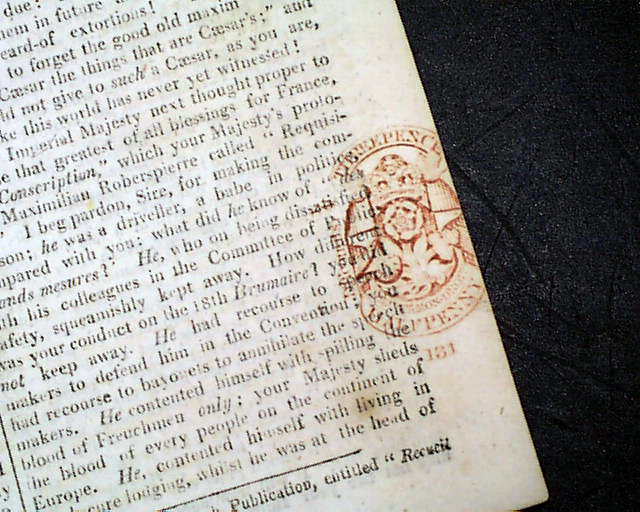 due?
hem in future
eard-of extortions!
to forget the good old maxim
Cæsar the things that are Cæsar's;" and
ld not give to such a Cæsar, as you are,
ke this world has never yet witnessed!
Imperial Majesty next thought proper to
e that greatest of all blessings for France,
Conscription," which your Majesty's proto-
Maximilian Roberspierre called "Requisi-
I beg pardon, Sire, for making the com-
son; he was a driveller, a babe in politics
mpared with you; what did he know of
ands mesures?" He, who on being
th his colleagues in the Committee of
afety, squeamishly kept away. How
was your conduct on the 18th Brumaire?
not keep away. He had recourse to
makers to defend him in the Convention; you
had recourse to bayonets to annihilate the
makers. He contented himself with spilling the
blood of Frenchmen only; your Majesty sheds
the blood of every people on the continent of
Europe. He, contented himself with living in
lodging, whilst he was at the head of
Publication, entitled "Recueil
THREEPENCE
HALFPENNY
181